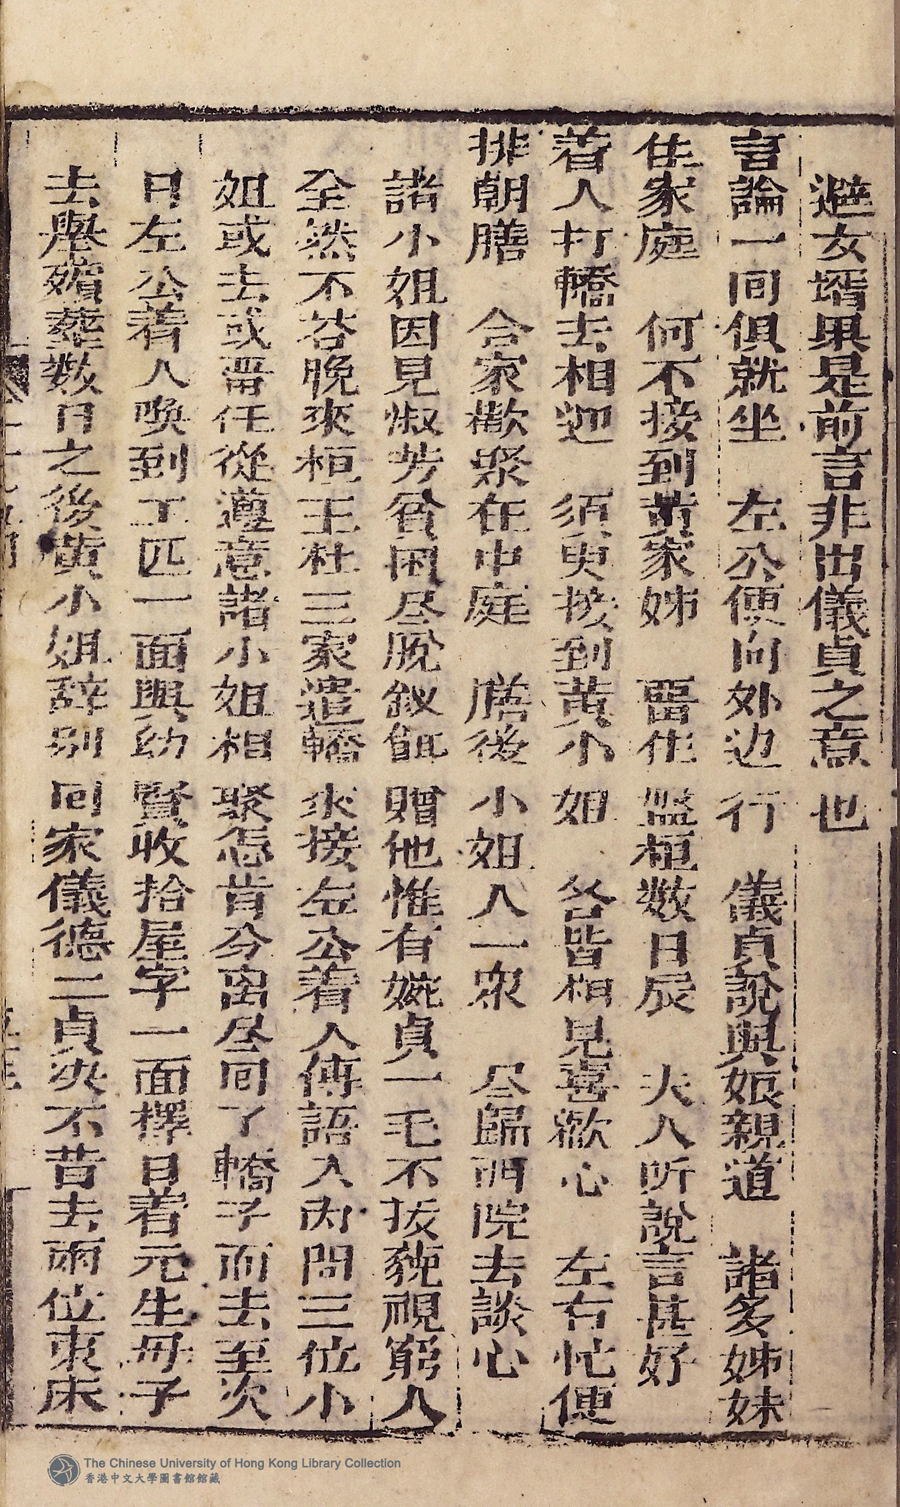 避女壻果是前言非出儀貞之意也
言論一同俱就坐　左公便向外边行　儀貞說與娘親道　諸多姊妹
住家庭　何不接到黄家姊　畱住盤桓数日辰　夫人听說言甚好
着人打轎去相迎　須臾接到黄小姐　各皆相見喜歡心　左右忙便
排朝膳　合家歡聚在中庭　膳後小姐人一衆　尽歸西院去談心
諸小姐因見淑芳貧困尽脫釵釧赠他惟有婉貞一毛不拔藐視窮人
全然不荅晚來桓王杜三家遣轎來接左公着人傳語入内問三位小
姐或去或畱任從遵意諸小姐相聚怎肯分离尽囘了轎子而去至次
日左公着人喚到工匹一面與幼賢收拾屋字一面擇日着元生毋子
去舉殯塟数日之後黄小姐辞别囘家儀德二貞决不昔去兩位東床
The Chinese University of Hong Kong Library Collection
香港中文大學圖書館館藏